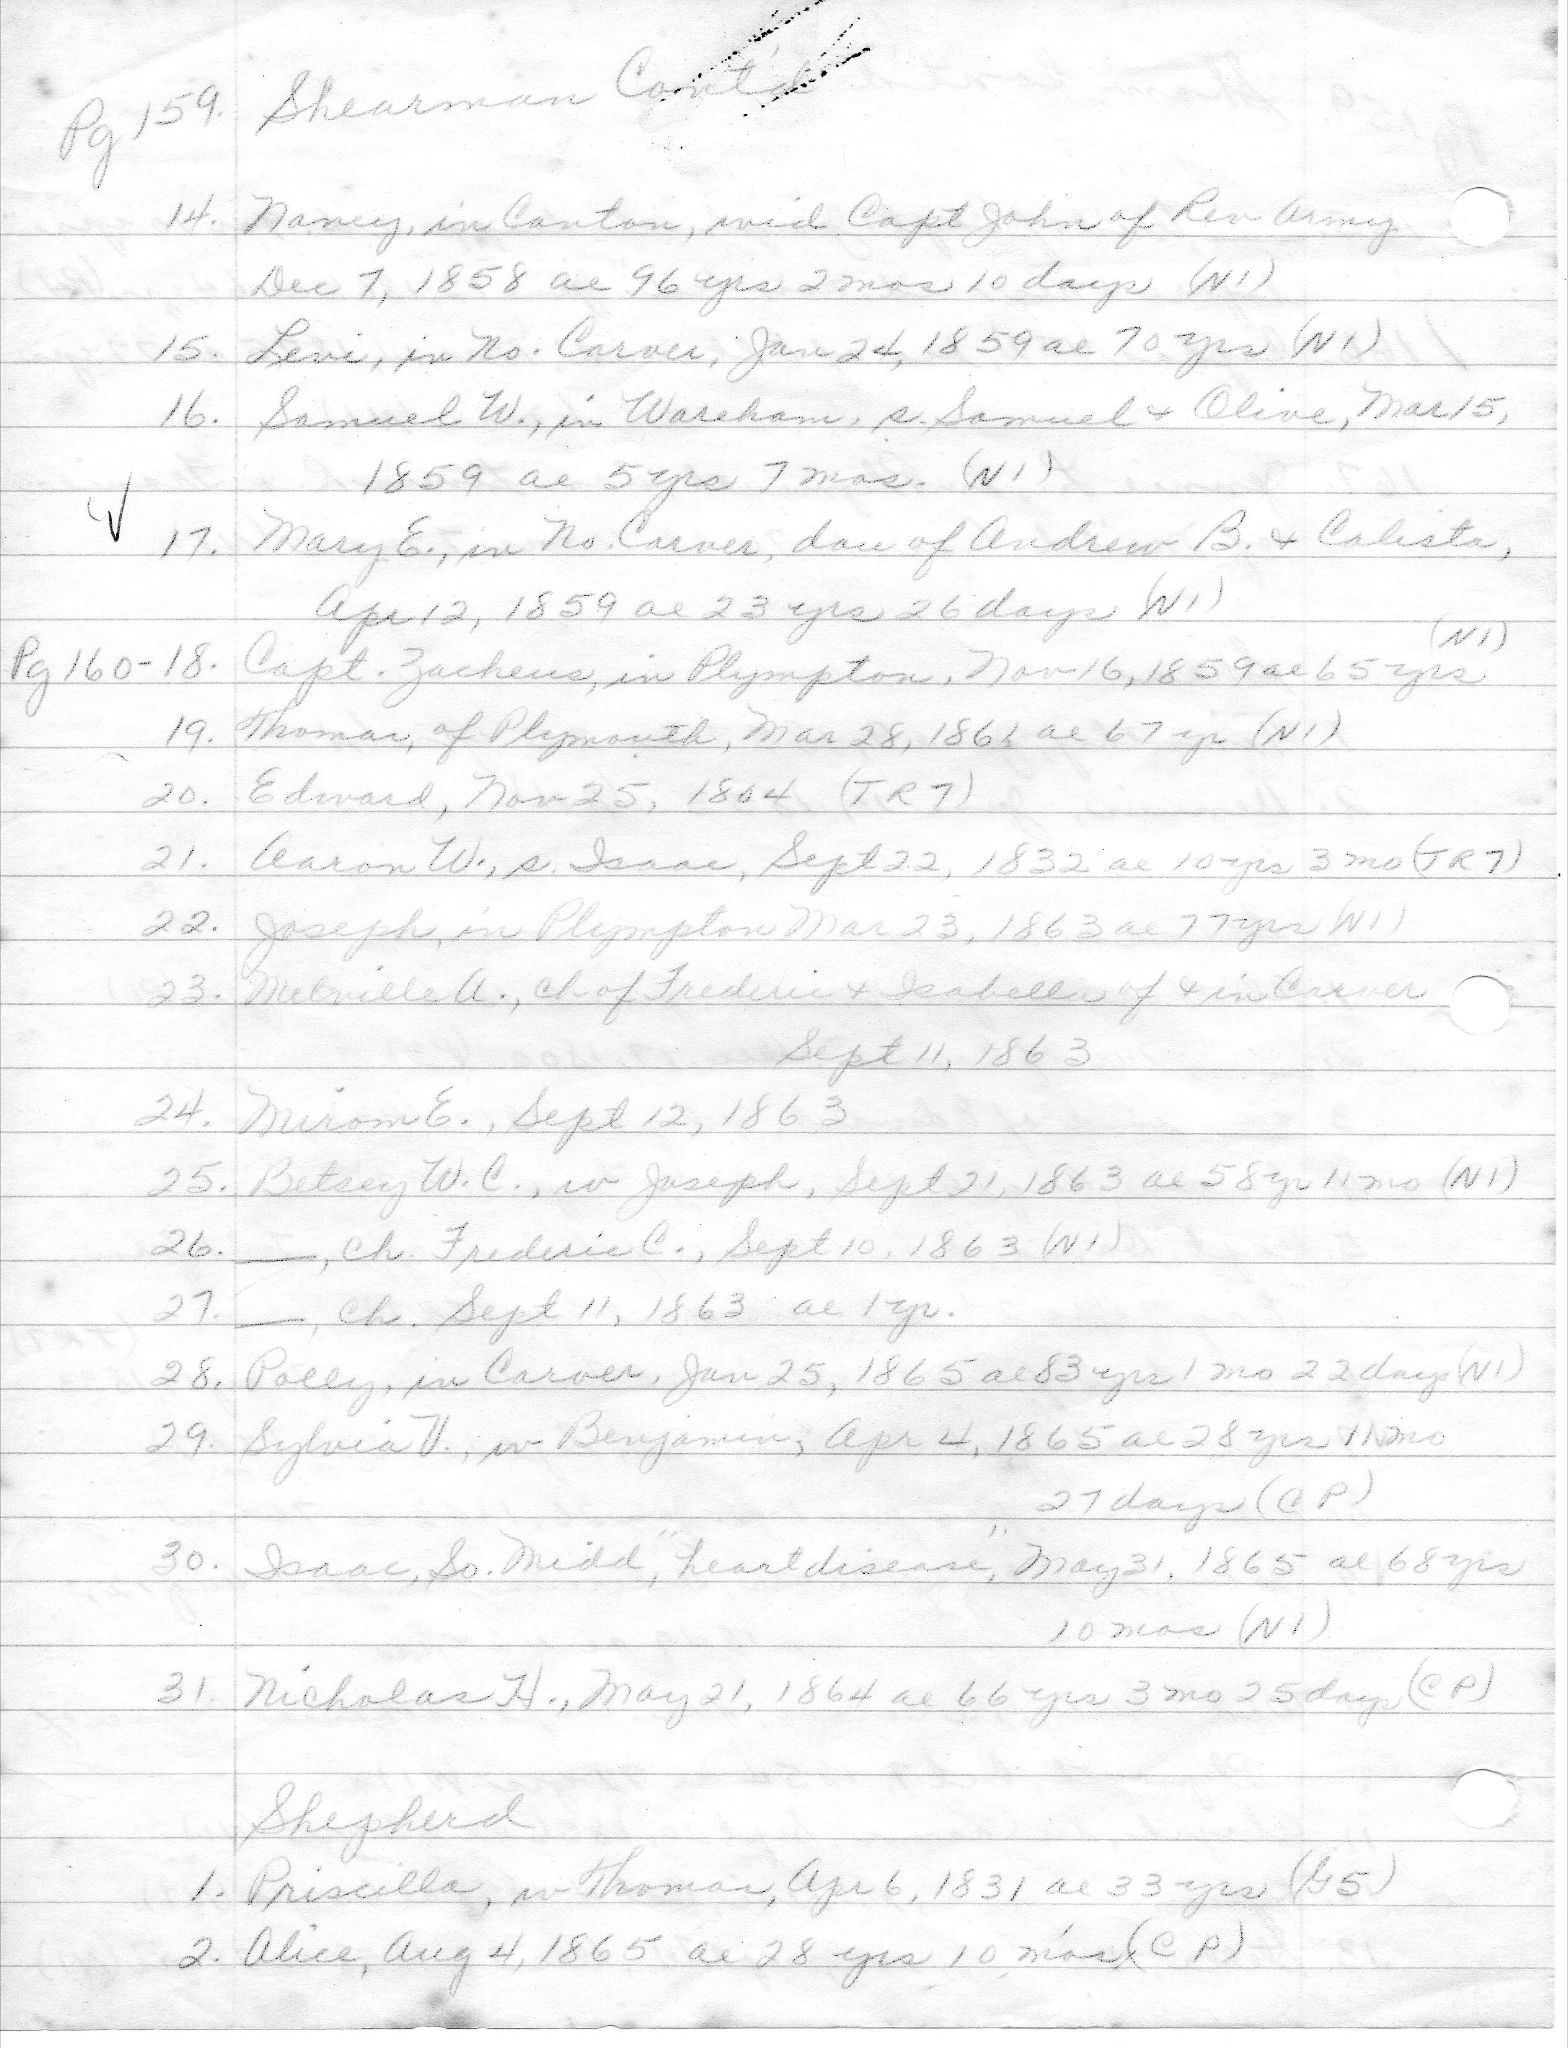 Pg 159. Shearman Cont'd
14. Nancy, in Canton, wid Capt John of Rev Army
Dec 7, 1858 ae 96 yrs 2 mos 10 days (N1)
15. Levi, in No. Carver, Jan 24, 1859 ae 70 yrs (N1)
16. Samuel W., in Wareham, s. Samuel + Olive, Mar 15,
1859 ae 5 yrs 7 mos. (N1)
17. Mary E., in No. Carver, dau of Andrew B. + Calista,
Apr 12, 1859 ae 23 yrs 26 days (N1)
Pg 160-18. Capt. Zacheus, in Plympton, Nov 16, 1859 ae 65 yrs (N1)
19. Thomas, of Plymouth, Mar 28, 1861 ae 67 yr (N1)
20. Edward, Nov 25, 1804 (TR7)
21. Aaron W., s. Isaac, Sept 22, 1832 ae 10 yrs 3 mo (TR7)
22. Joseph, in Plympton Mar 23, 1863 ae 77 yrs (N1)
23. Melville A., ch of Frederic + Isabella of + in Carver
Sept 11, 1863
24. Mirom E., Sept 12, 1863
25. Betsey W. C., w Joseph, Sept 21, 1863 ae 58 yr 11 mo (N1)
26. —, ch. Frederic C., Sept 10, 1863 (N1)
27. —, ch. Sept 11, 1863 ae 1 yr.
28. Polly, in Carver, Jan 25, 1865 ae 83 yrs 1 mo 22 days (N1)
29. Sylvia V., w Benjamin, Apr 4, 1865 ae 28 yrs 11 mo
27 days (CP)
30. Isaac, So. Midd, "heart disease", May 31, 1865 ae 68 yrs
10 mos (N1)
31. Nicholas H., May 21, 1864 ae 66 yrs 3 mo 25 days (CP)
Shepherd
1. Priscilla, w Thomas, Apr 6, 1831 ae 33 yrs (G5)
2. Alice, Aug 4, 1865 ae 28 yrs 10 mos (CP)